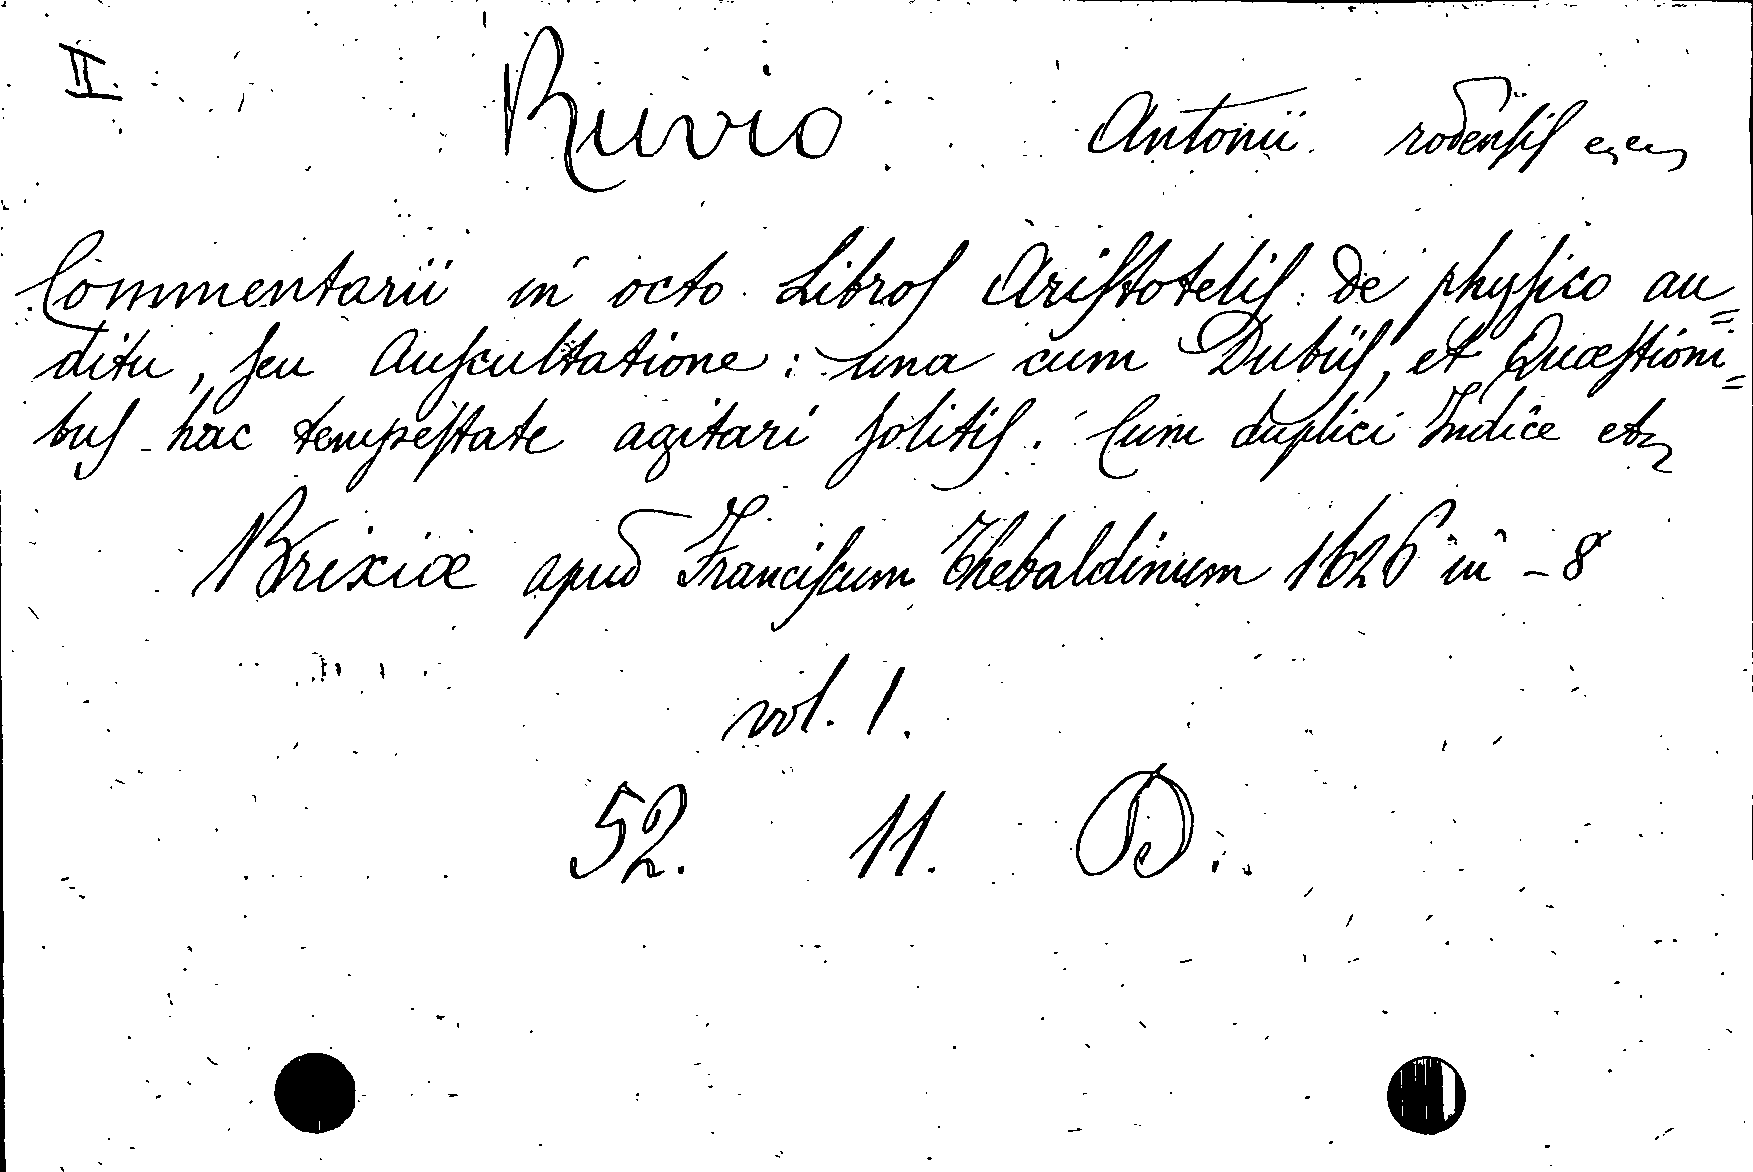 II.
Ruvio Antonii rodensis
Commentarii in octo Libros Aristotelis de physico au=
ditu, seu Auscultatione: una cum Dubiis, et Quæstioni=
bus hac tempestate agitari solitis. Cum duplici Indice etc
Brixiæ apud Franciscum Thebaldinum 1626 in-8
vol. 1.
52. 11. D.